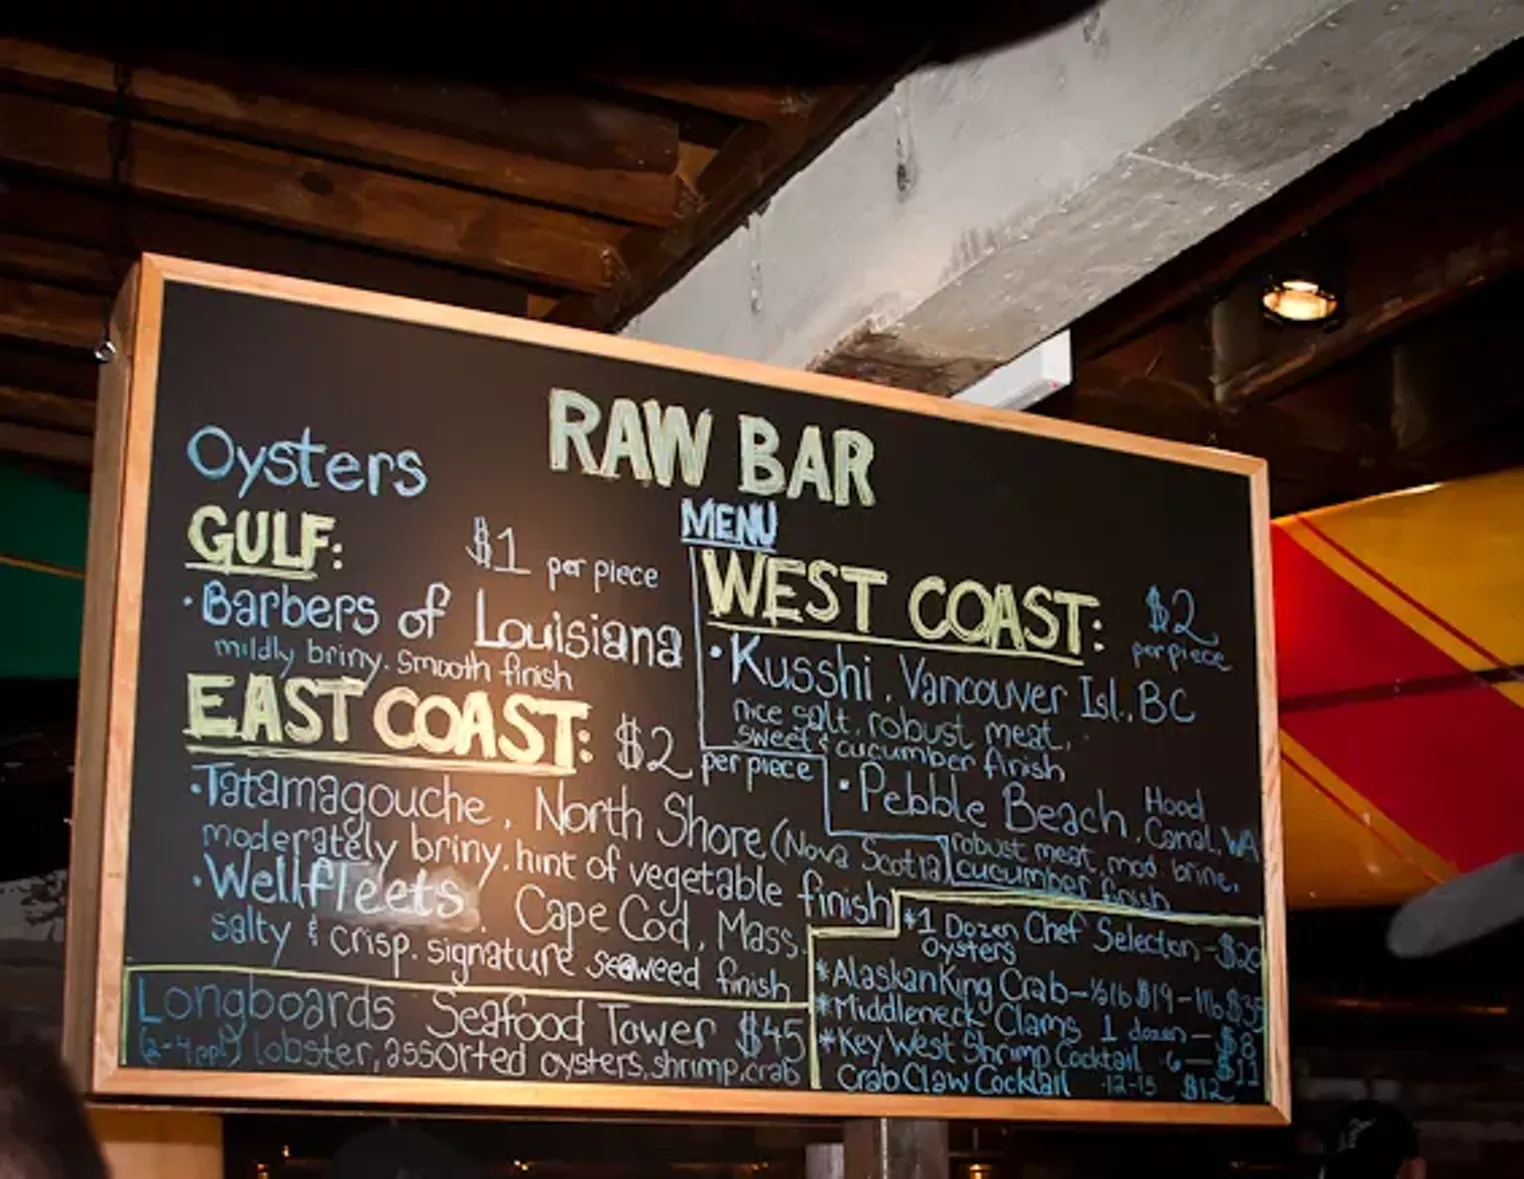 RAW BAR
MENU
Oysters
GULF: $1 per piece
·Barbers of Louisiana
mildly briny. smooth finish
EAST COAST: $2 per piece
·Tatamagouche, North Shore (Nova Scotia)
moderately briny. hint of vegetable finish
·Wellfleets. Cape Cod, Mass.
salty & crisp. signature seaweed finish
Longboards Seafood Tower $45
(2-4 ppl) lobster, assorted oysters, shrimp, crab
WEST COAST: $2
per piece
·Kusshi, Vancouver Isl., BC
nice salt, robust meat,
sweet & cucumber finish
·Pebble Beach, Hood
Canal, WA
robust meat, mod. brine,
cucumber finish
*1 Dozen Chef Selection - $20
Oysters
*Alaskan King Crab - ½ lb $19 - 1 lb $35
*Middleneck Clams 1 dozen - $8
*Key West Shrimp Cocktail 6 - $11
Crab Claw Cocktail 12-15 $12